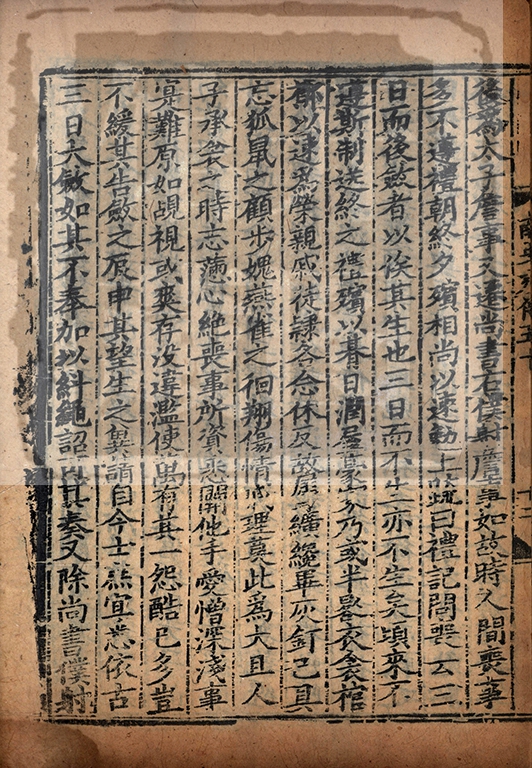 後為太子詹事又遷尚書右僕射詹事如故時人間喪事
多不遵禮朝終夕殯相尚以速勉上疏曰禮記問喪云三
日而後斂者以俟其生也三日而不生亦不生矣頃來不
遵斯制送終之禮殯以朞日潤屋豪家乃或半晷衣衾棺
槨以速為榮親戚徒隸各念休反故屬纊纔畢灰釘已具
忘狐鼠之顧步媿燕雀之徊翔傷情滅理莫此為大且人
子承衾之時志懣心絶喪事所資悉關他手愛憎深淺事
寔難原如覘視或爽存沒違濫使萬有其一怨酷已多豈
不緩其告斂之辰申其望生之冀請自今士庶宜悉依古
三日大斂如其不奉加以糾繩詔可其奏又除尚書僕射